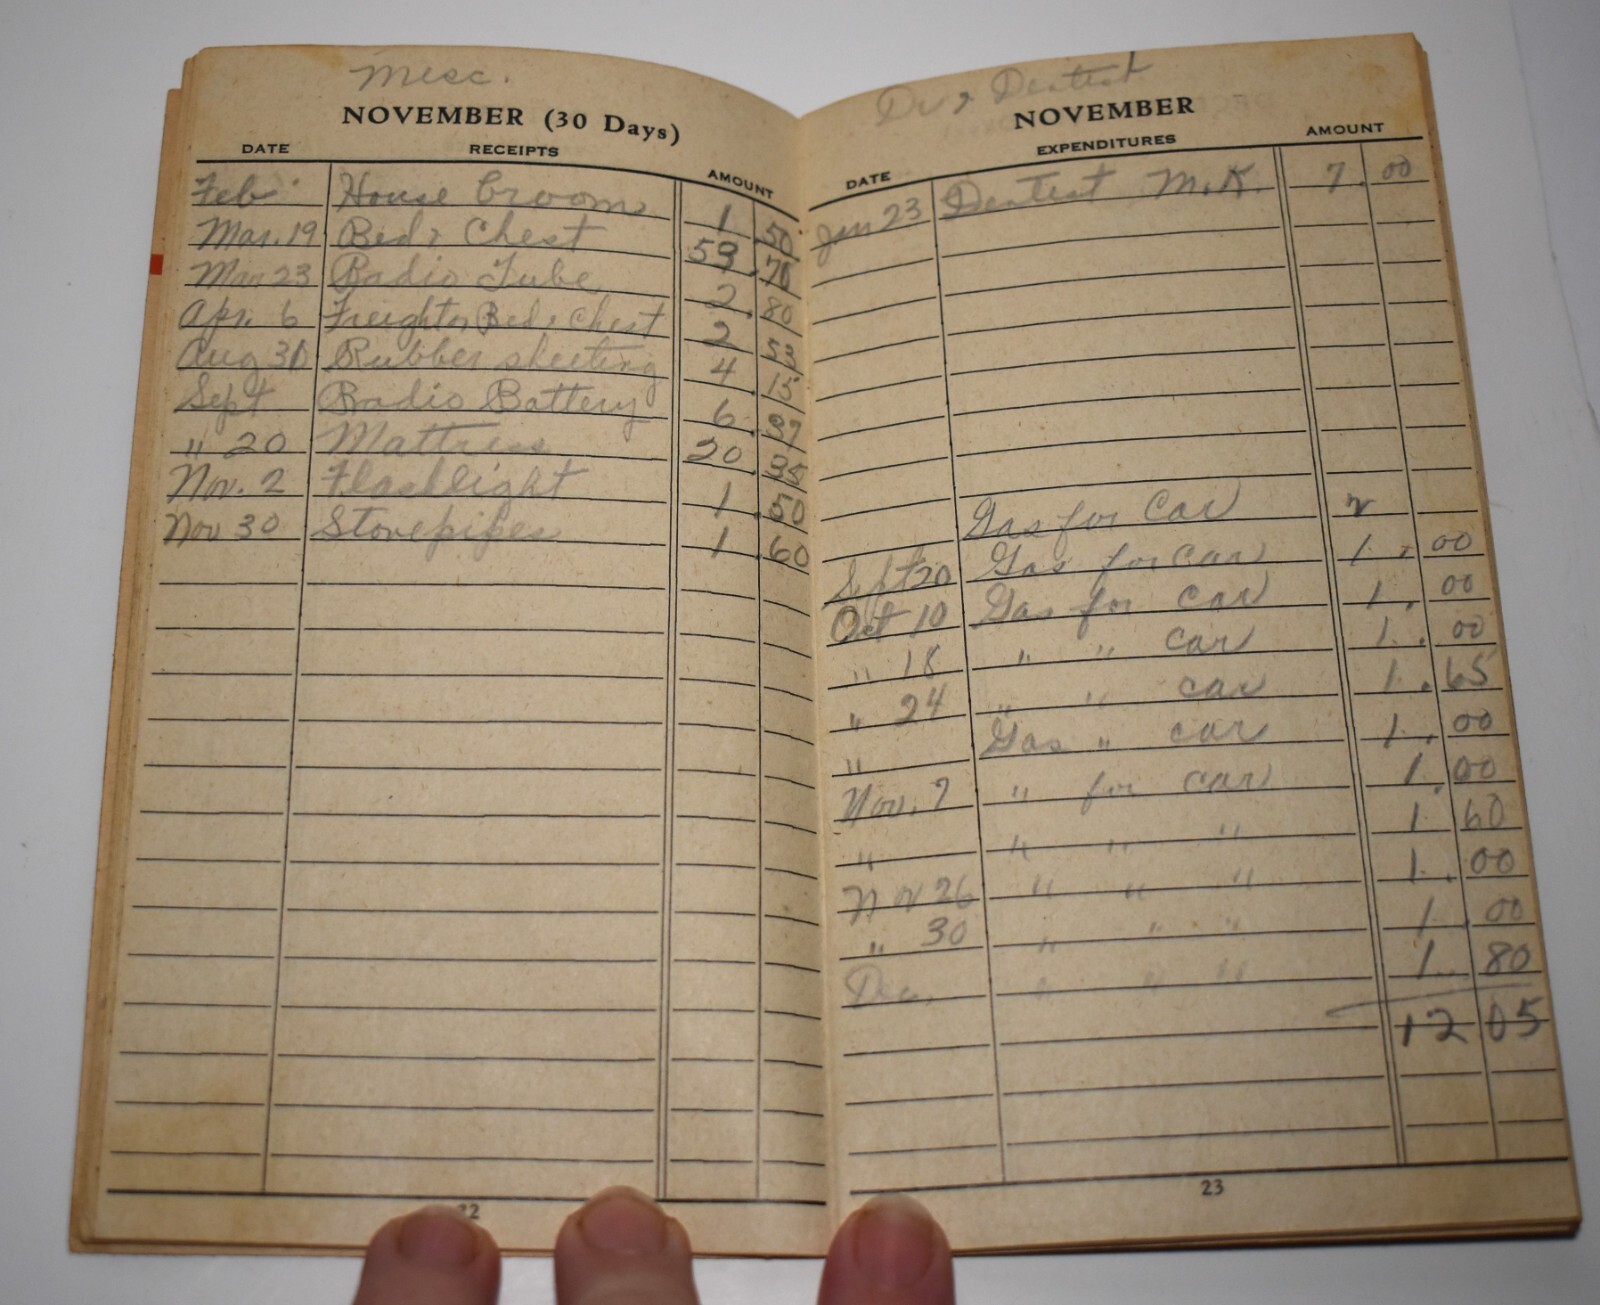 Misc.
NOVEMBER (30 Days)
DATE RECEIPTS AMOUNT
Feb House broom 1 50
Mar. 19 Bed & Chest 59.70
Mar 23 Radio Tube 2.80
Apr. 6 Freight on Bed & Chest 2 53
Aug 30 Rubber sheeting 4.15
Sept Radio Battery 6.37
" 20 Mattress 20.35
Nov. 2 Flashlight 1.50
Nov 30 Stovepipes 1.60
22
Dr & Dentest
NOVEMBER
DATE EXPENDITURES AMOUNT
Jan 23 Dentest M.K. 7.00
Gas for Car
Sept 20 Gas for car 1.00
Oct 10 Gas for car 1.00
" 18 " " car 1.00
" 24 " " car 1.65
" Gas " car 1.00
Nov. 7 " for car 1.00
" " " " 1.60
Nov 26 " " " 1.00
" 30 " " " 1.00
Dec. " " " 1.80
12 05
23